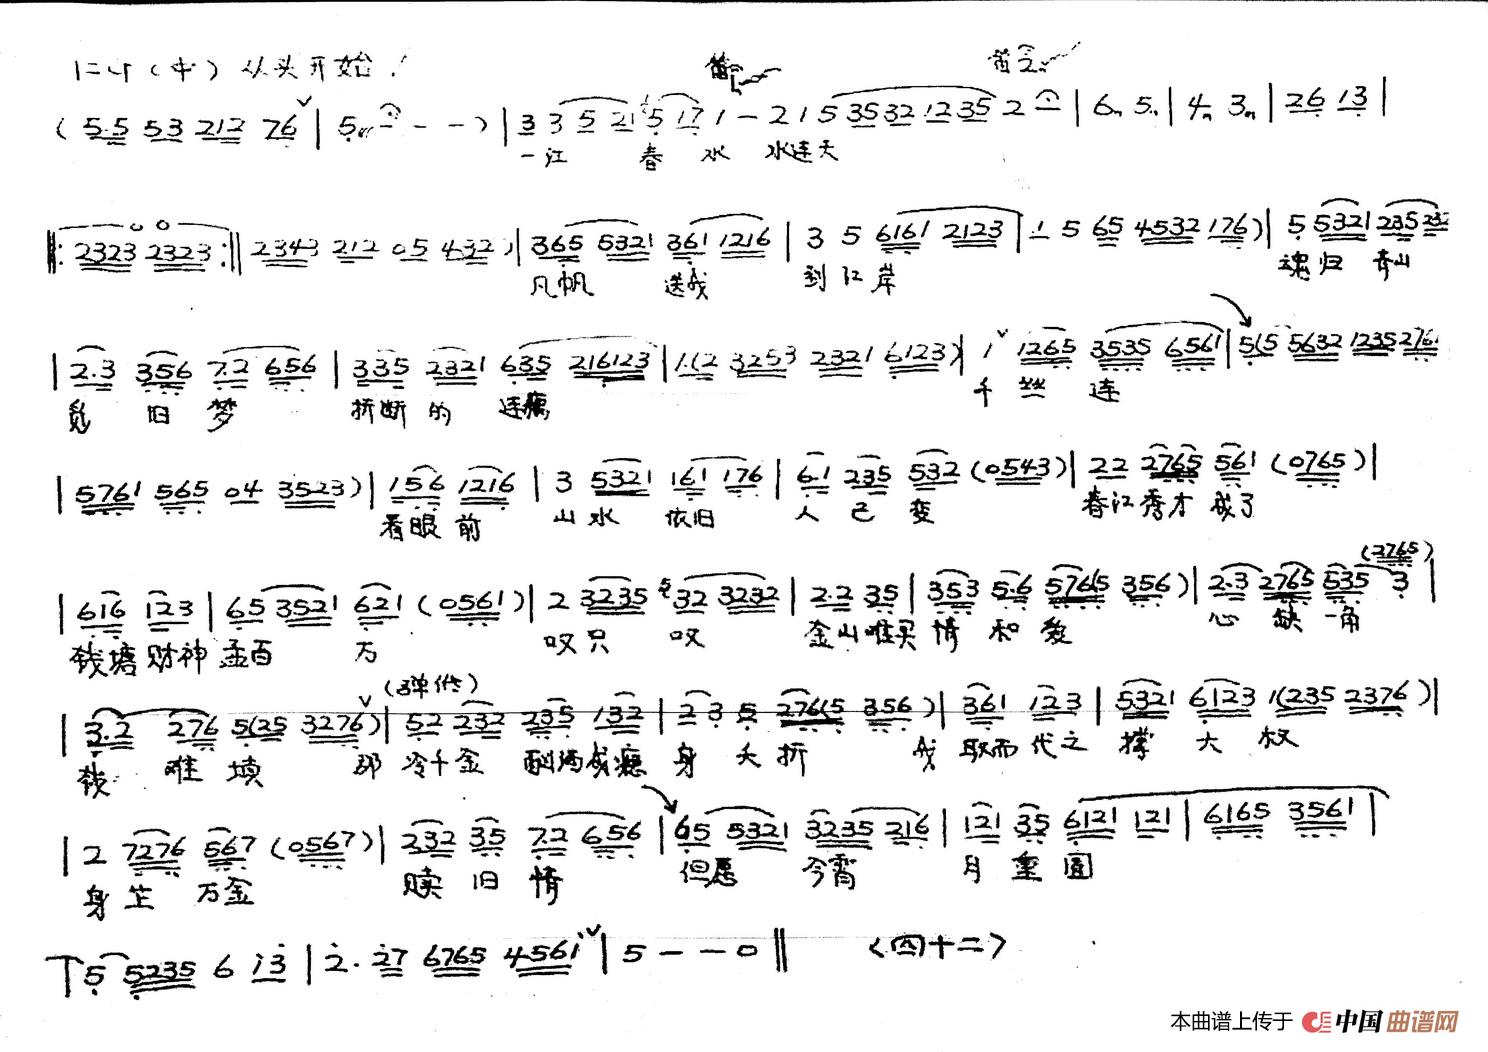 从头开始！
(5·5 53 212 76 | 5 - - -) | 3 3 5 21 5 17 1 - 2 1 5 35 32 12 35 2 - | 6 5 | 4 3 | 26 13 |
一江 春 水 水连天
‖: 2323 2323 :‖ 2343 212 05 432) | 365 5321 361 1216 | 3 5 6161 2123 | 1 5 65 4532 176) | 5 5321 235 232
凡帆 送我 到江岸 魂归 青山
| 2·3 356 7·2 656 | 335 2321 635 216123 | 1·(2 3253 2321 6123) | 1 1265 3535 6561 | 5(5 5632 1235 2761
觅 旧 梦 折断的 连藕 千丝 连
| 5761 565 04 3523) | 156 1216 | 3 5321 161 176 | 6·1 235 532 (0543) | 22 2765 561 (0765) |
看眼前 山水 依旧 人 已 变 春江秀才 成了
(2765)
| 616 123 | 65 3521 621 (0561) | 2 3235 32 3232 | 2·2 35 | 353 5·6 576(5 356) | 2·3 2765 535 3 |
钱塘财神 孟百 万 叹只 叹 金山难买 情 和 爱 心 缺 一角
| 3·2 276 5(25 3276) | 52 232 235 132 | 2 3 5 276(5 356) | 361 123 | 5321 6123 1(235 2376) |
钱 难 填 那 冷千金 身 夭 折 我 取而代之 撑 大 权
| 2 7276 567 (0567) | 232 35 7·2 656 | 65 5321 3235 216 | 121 35 6121 121 | 6165 3561 |
身 生 万金 赎 旧 情 但愿 今宵 月 重 圆
5 5235 6 13 | 2· 27 6765 4561 | 5 - - 0 ‖ <四十二>
本曲谱上传于 中国曲谱网